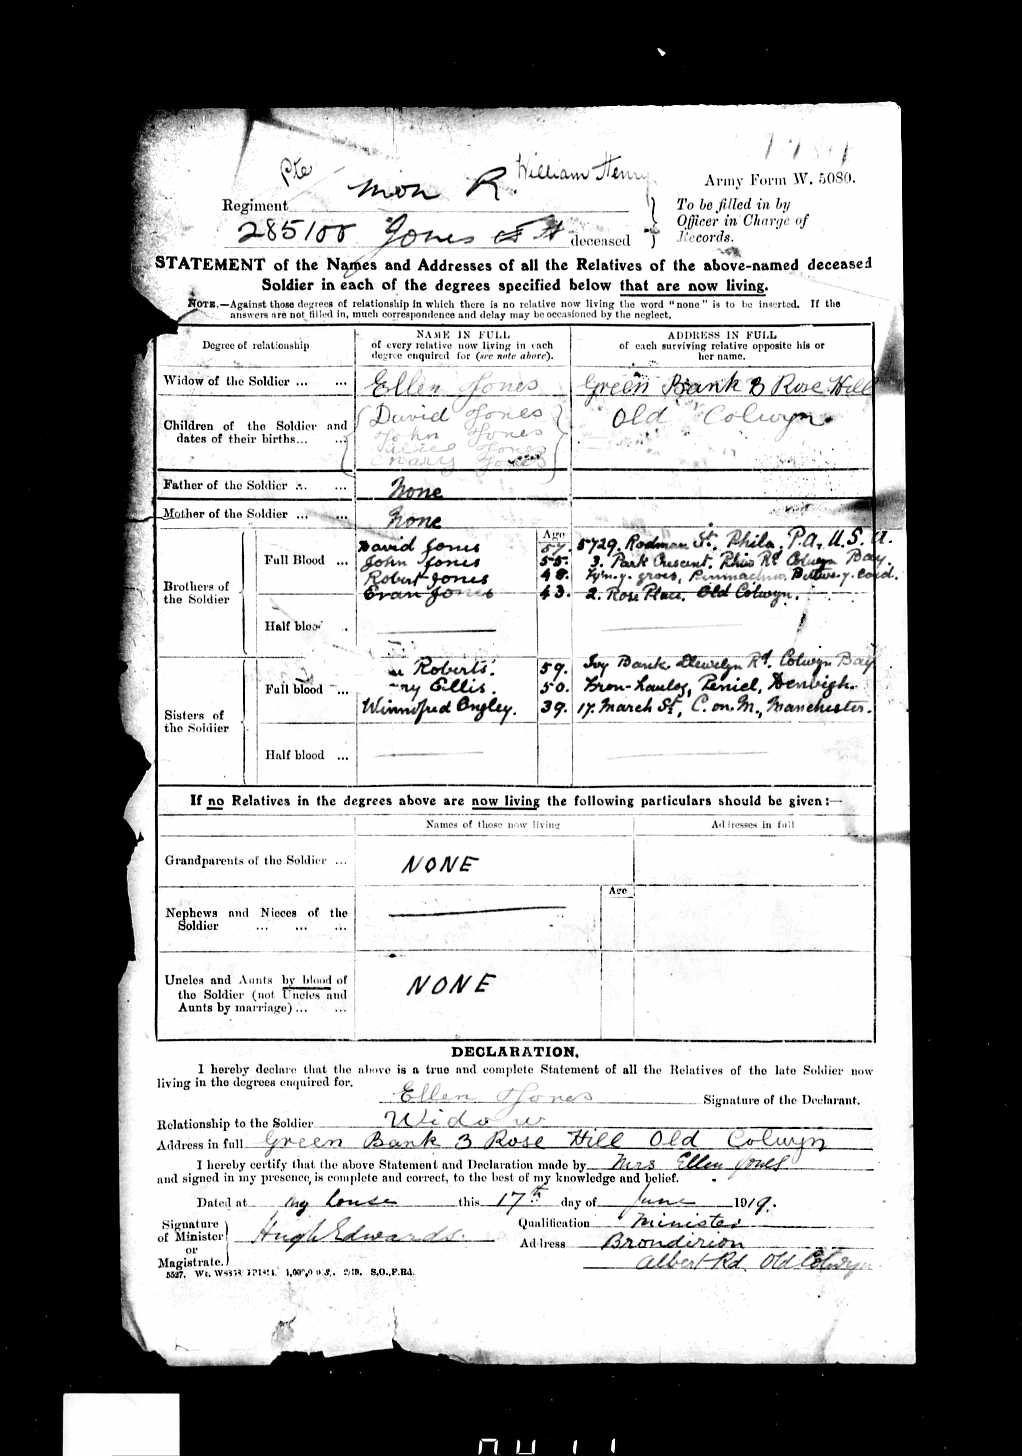 Pte William Henry
Army Form W. 5080.
Regiment Mon R.
285100 Jones deceased
To be filled in by
Officer in Charge of
Records.
STATEMENT of the Names and Addresses of all the Relatives of the above-named deceased
Soldier in each of the degrees specified below that are now living.
NOTE.—Against those degrees of relationship in which there is no relative now living the word "none" is to be inserted. If the
answers are not filled in, much correspondence and delay may be occasioned by the neglect.
Degree of relationship
NAME IN FULL
of every relative now living in each
degree enquired for (see note above).
ADDRESS IN FULL
of each surviving relative opposite his or
her name.
Widow of the Soldier ... ... Ellen Jones Green Bank 3 Rose Hill
Children of the Soldier and
dates of their births... ...
David Jones Old Colwyn.
John Jones
Jones
Mary Jones
Father of the Soldier ... ... None
Mother of the Soldier ... ... None
Brothers of
the Soldier
Full Blood ...
Age
David Jones 57. 5729. Rodman St. Phila. P.A. U.S.A.
John Jones 55. 3. Park Crescent. Rhiw Rd Colwyn Bay.
Robert Jones 48. Penmachno. Bettws-y-coed.
Evan Jones 43. 2. Rose Place. Old Colwyn.
Half blood .
Sisters of
the Soldier
Full blood ...
Roberts. 59. Ivy Bank Llewelyn Rd. Colwyn Bay
ny Ellis. 50. Fron-haulog, Peniel, Denbigh.
Winnifred Ongley. 39. 17. March St., C. on. M., Manchester.
Half blood ...
If no Relatives in the degrees above are now living the following particulars should be given:—
Names of those now living
Addresses in full
Grandparents of the Soldier ... NONE
Age
Nephews and Nieces of the
Soldier ... ... ...
Uncles and Aunts by blood of
the Soldier (not Uncles and
Aunts by marriage) ... ...
NONE
DECLARATION.
I hereby declare that the above is a true and complete Statement of all the Relatives of the late Soldier now
living in the degrees enquired for.
Ellen Jones Signature of the Declarant.
Relationship to the Soldier Widow
Address in full Green Bank 3 Rose Hill Old Colwyn
I hereby certify that the above Statement and Declaration made by Mrs Ellen Jones
and signed in my presence, is complete and correct, to the best of my knowledge and belief.
Dated at my house this 17th day of June 1919.
Signature
of Minister
or
Magistrate.
Hugh Edwards.
Qualification Minister
Address Brondirion
Albert Rd. Old Colwyn